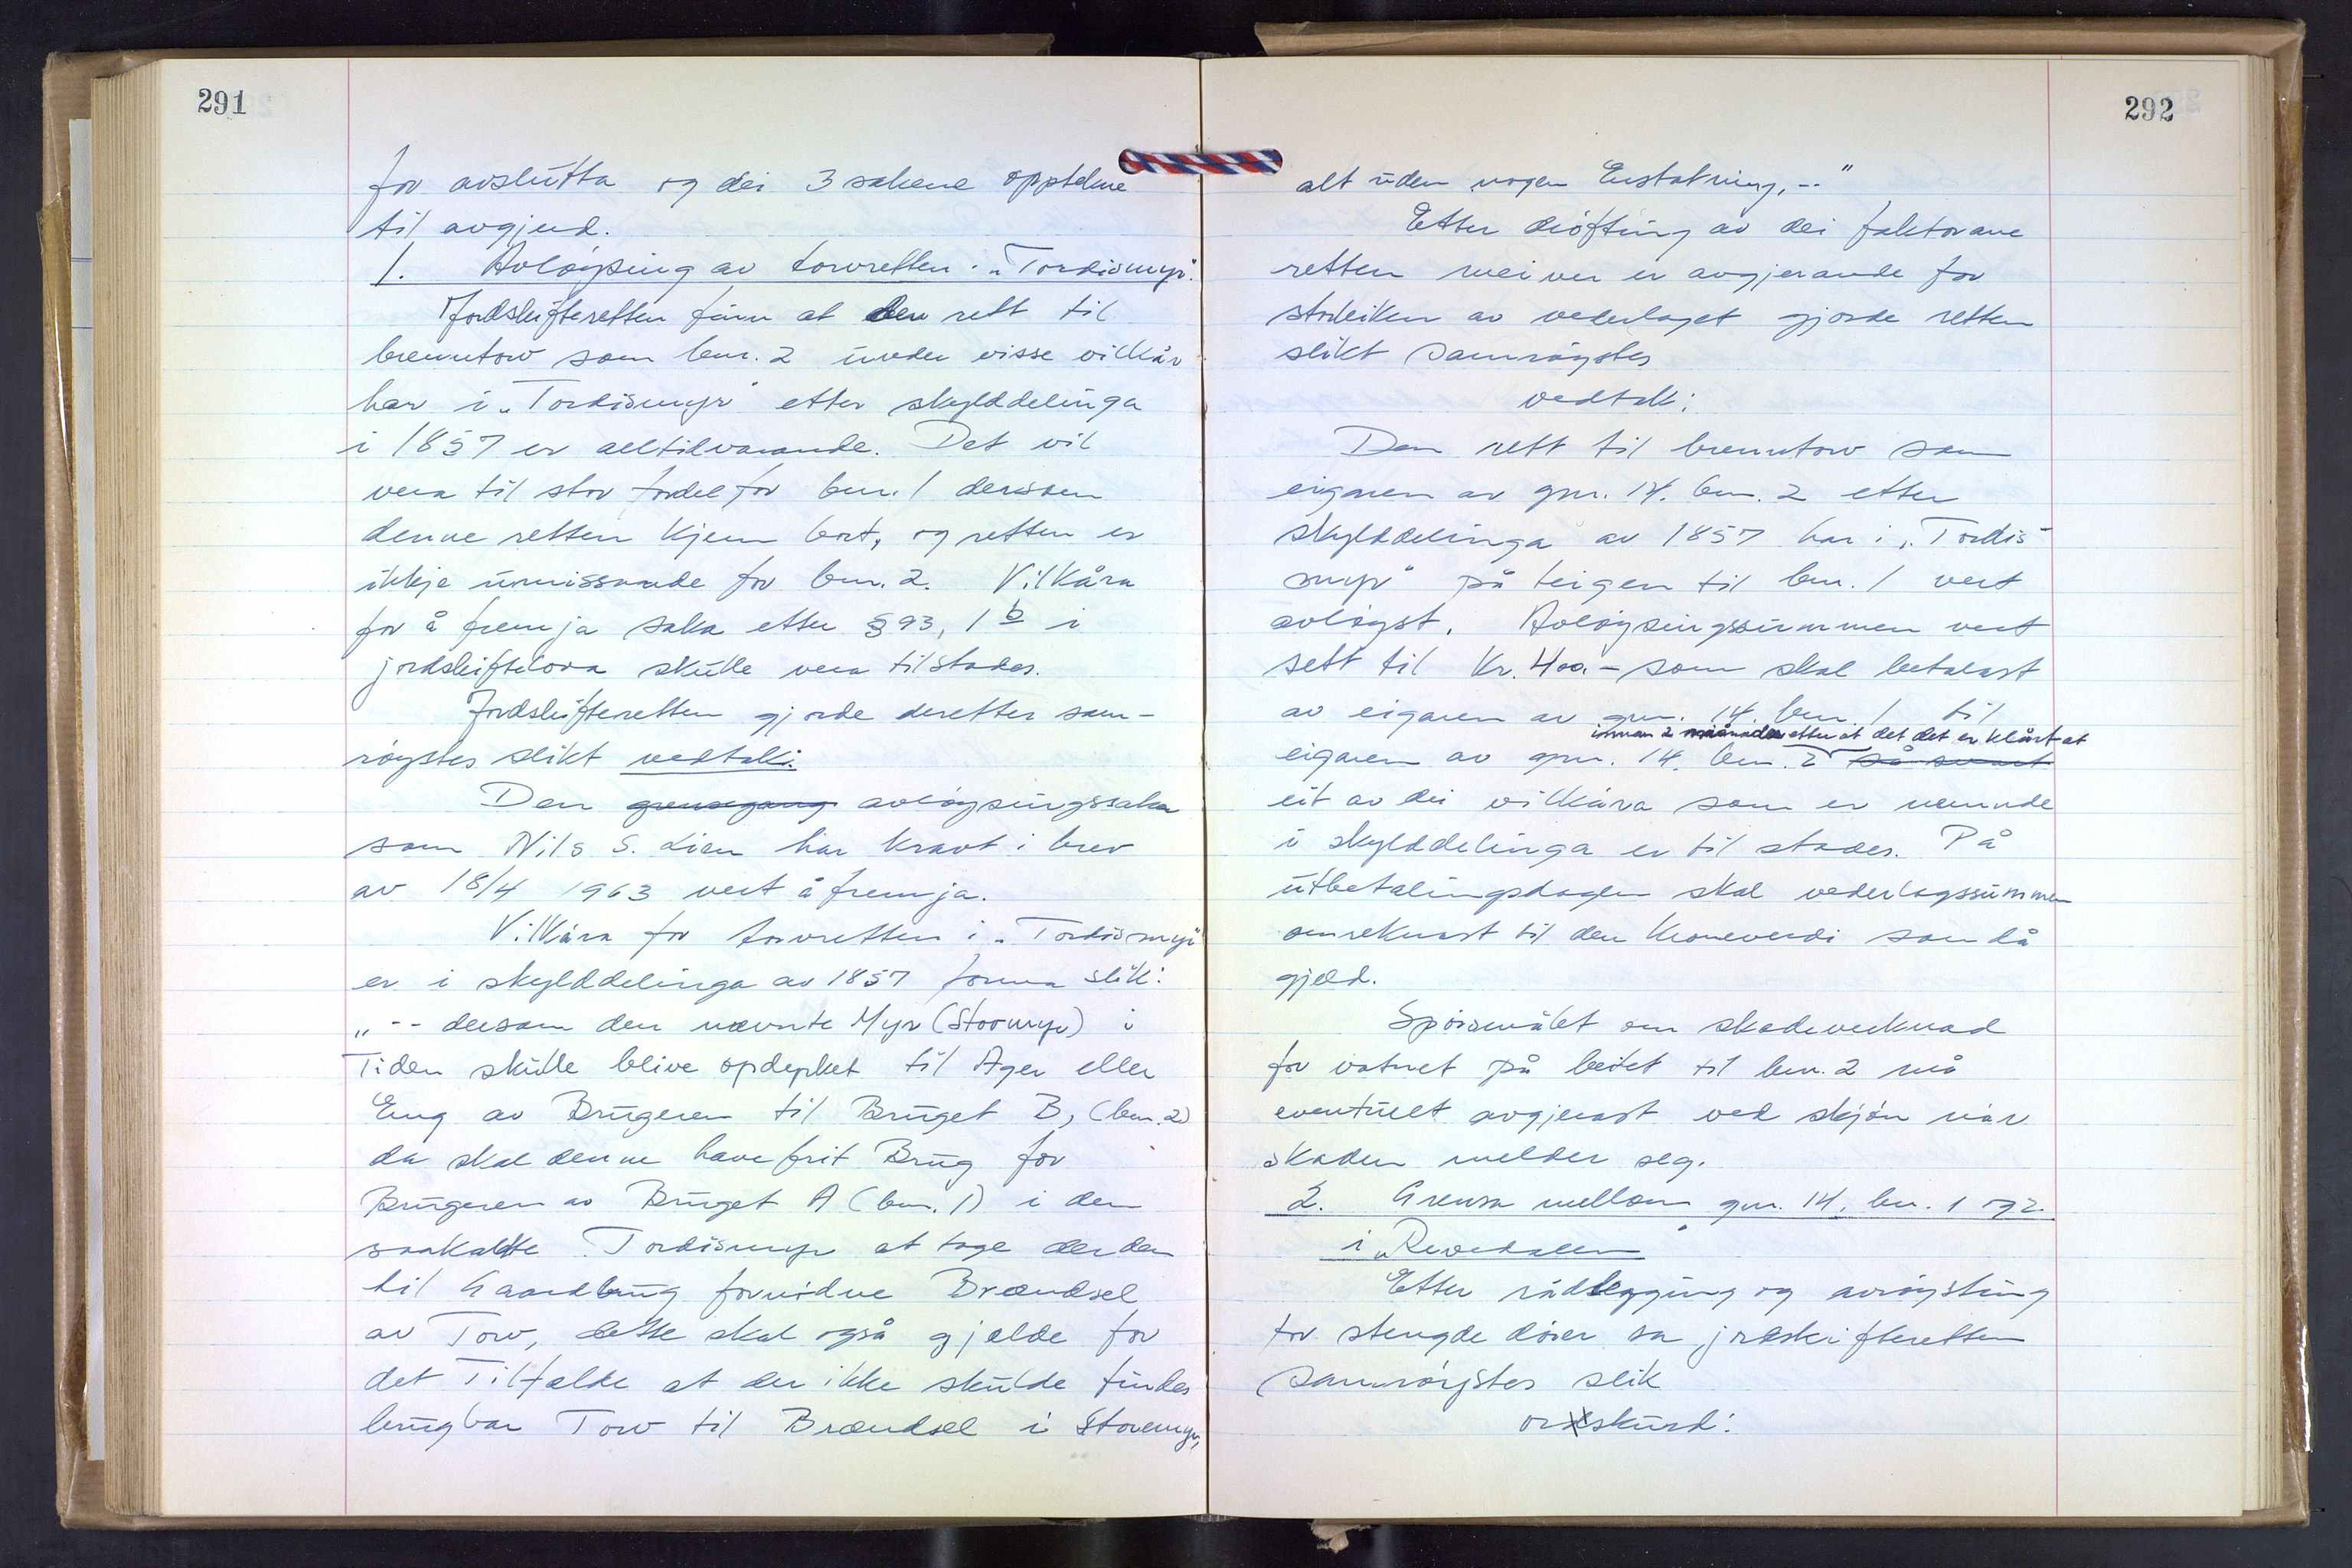 291
for avslutta og dei 3 sakene opptekne
til avgjerd.
1. Avløysing av torvretten i „Tordismyr".
Jordskifteretten finn at den rett til
brenntorv som bnr. 2 under visse vilkår
har i „Tordismyr" etter skylddelinga
i 1857 er alltidvarande. Det vil
vera til stor fordel for bnr. 1 dersom
denne retten kjem bort, og retten er
ikkje umissande for bnr. 2. Vilkåra
for å fremja saka etter § 93, 1 b i
jordskiftelova skulle vera tilstades.
Jordskifteretten gjorde deretter sam-
røystes slikt vedtak:
Den grensegang avløysingssaka
som Nils S. Lien har kravt i brev
av 18/4 1963 vert å fremja.
Vilkåra for torvretten i „Tordismyr"
er i skylddelinga av 1857 forma slik:
„-- dersom den nævnte Myr (Stormyr) i
Tiden skulle blive opdyrket til Ager eller
Eng av Brugeren til Bruget B, (bnr. 2)
da skal denne have frit Brug for
Brugeren av Bruget A (bnr. 1) i den
saakaldte Tordismyr at tage derden
til Gaardbrug fornødne Brændsel
av Torv, dette skal også gjælde for
det Tilfælde at der ikke skulde findes
brugbar Torv til Brændsel i Storemyr,
292
alt uden nogen Erstatning, --"
Etter drøfting av dei faktorane
retten meiner er avgjerande for
storleiken av vederlaget gjorde retten
slikt samrøystes
vedtak:
Den rett til brenntorv som
eigaren av gnr. 14. bnr. 2 etter
skylddelinga av 1857 har i „Tordis-
myr" på teigen til bnr. 1 vert
avløyst. Avløysingssummen vert
sett til kr. 400.- som skal betalast
av eigaren av gnr. 14. bnr. 1 til
innan 2 månader etter at det det er klårt at
eigaren av gnr. 14. bnr. 2 så snart
eit av dei vilkåra som er nemnde
i skylddelinga er til stades. På
utbetalingsdagen skal vederlagssummen
omreknast til den kroneverdi som då
gjeld.
Spørsmålet om skadeverknad
for vatnet på beitet til bnr. 2 må
eventuelt avgjerast ved skjøn når
skaden melder seg.
2. Grensa mellom gnr. 14, bnr. 1 og 2.
i „Revedalen"
Etter rådlegging og avrøysting
for stengde dører sa jordskifteretten
samrøystes slik
orskurd: